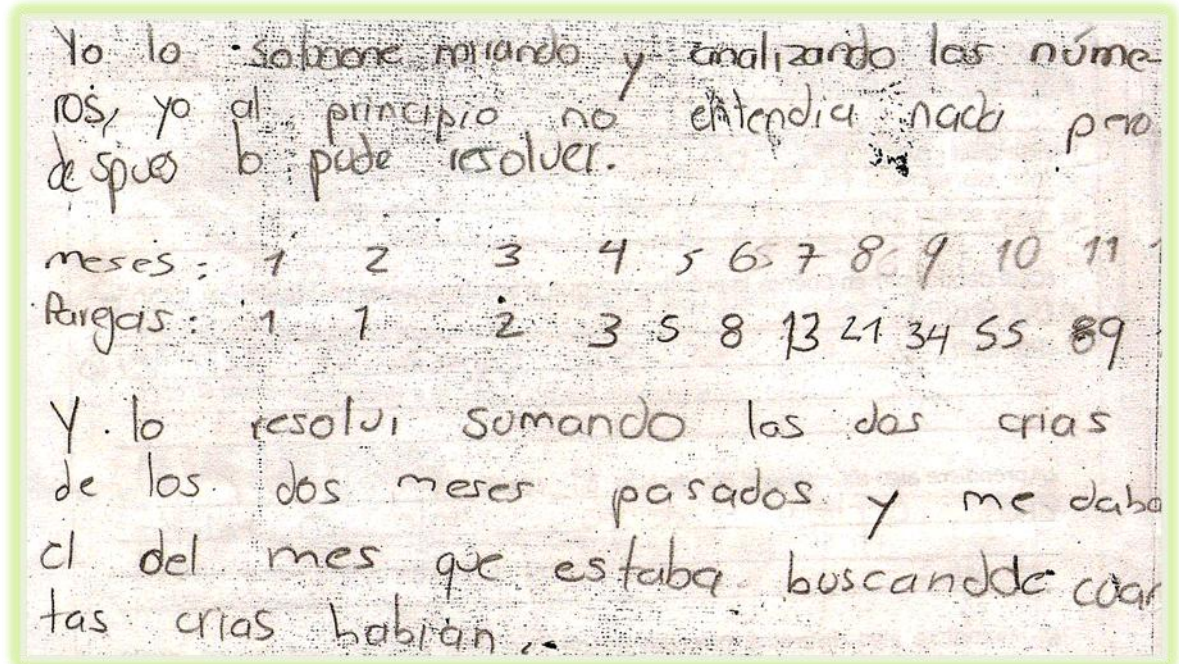 Yo lo solucione mirando y analizando los núme-
ros, yo al principio no entendia nada pero
despues lo pude resolver.
meses: 1 2 3 4 5 6 7 8 9 10 11
Parejas: 1 1 2 3 5 8 13 21 34 55 89
Y lo resolvi sumando las dos crias
de los dos meses pasados y me daba
el del mes que estaba buscando cuan
tas crias habian..